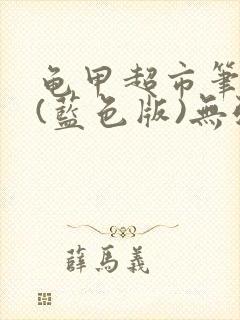 龟甲超市筆
(藍色版)無
薛馬義